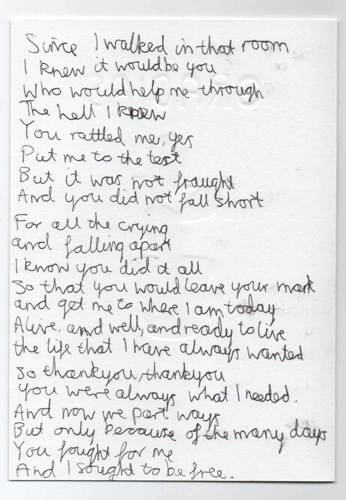 Since I walked in that room.
I knew it would be you
Who would help me through
The hell I knew
You rattled me, yes
Put me to the test
But it was not fraught
And you did not fall short
For all the crying
and falling apart
I know you did it all
So that you would leave your mark
and get me to where I am today
Alive, and well, and ready to live
the life that I have always wanted
So thankyou, thankyou
You were always what I needed.
And now we part ways
But only because of the many days
You fought for me
And I sought to be free.